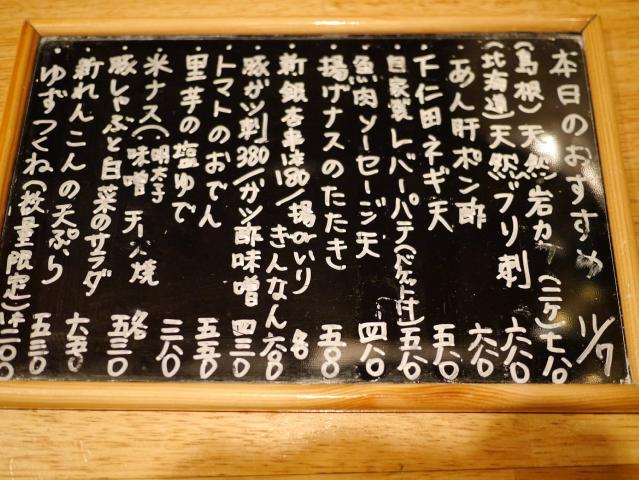 本日のおすすめ 11/7
(島根)天然岩カキ(二ヶ)七八〇
(北海道)天然ブリ刺 六八〇
あん肝ポン酢 六八〇
下仁田ネギ天 五八〇
自家製レバーパテ(バゲット付)五八〇
魚肉ソーセージ天 四八〇
揚げナスのたたき 五八〇
新銀杏串1本180/揚ぃいり ぎんなん 各六〇〇
豚ガツ刺380/ガツ酢味噌 四三〇
トマトのおでん 五五〇
里芋の塩ゆで 三八〇
米ナス(明太子 味噌 チーズ焼 各五三〇
豚しゃぶと白菜のサラダ 六五〇
新れんこんの天ぷら 五三〇
ゆずつくね(数量限定)1本二〇〇